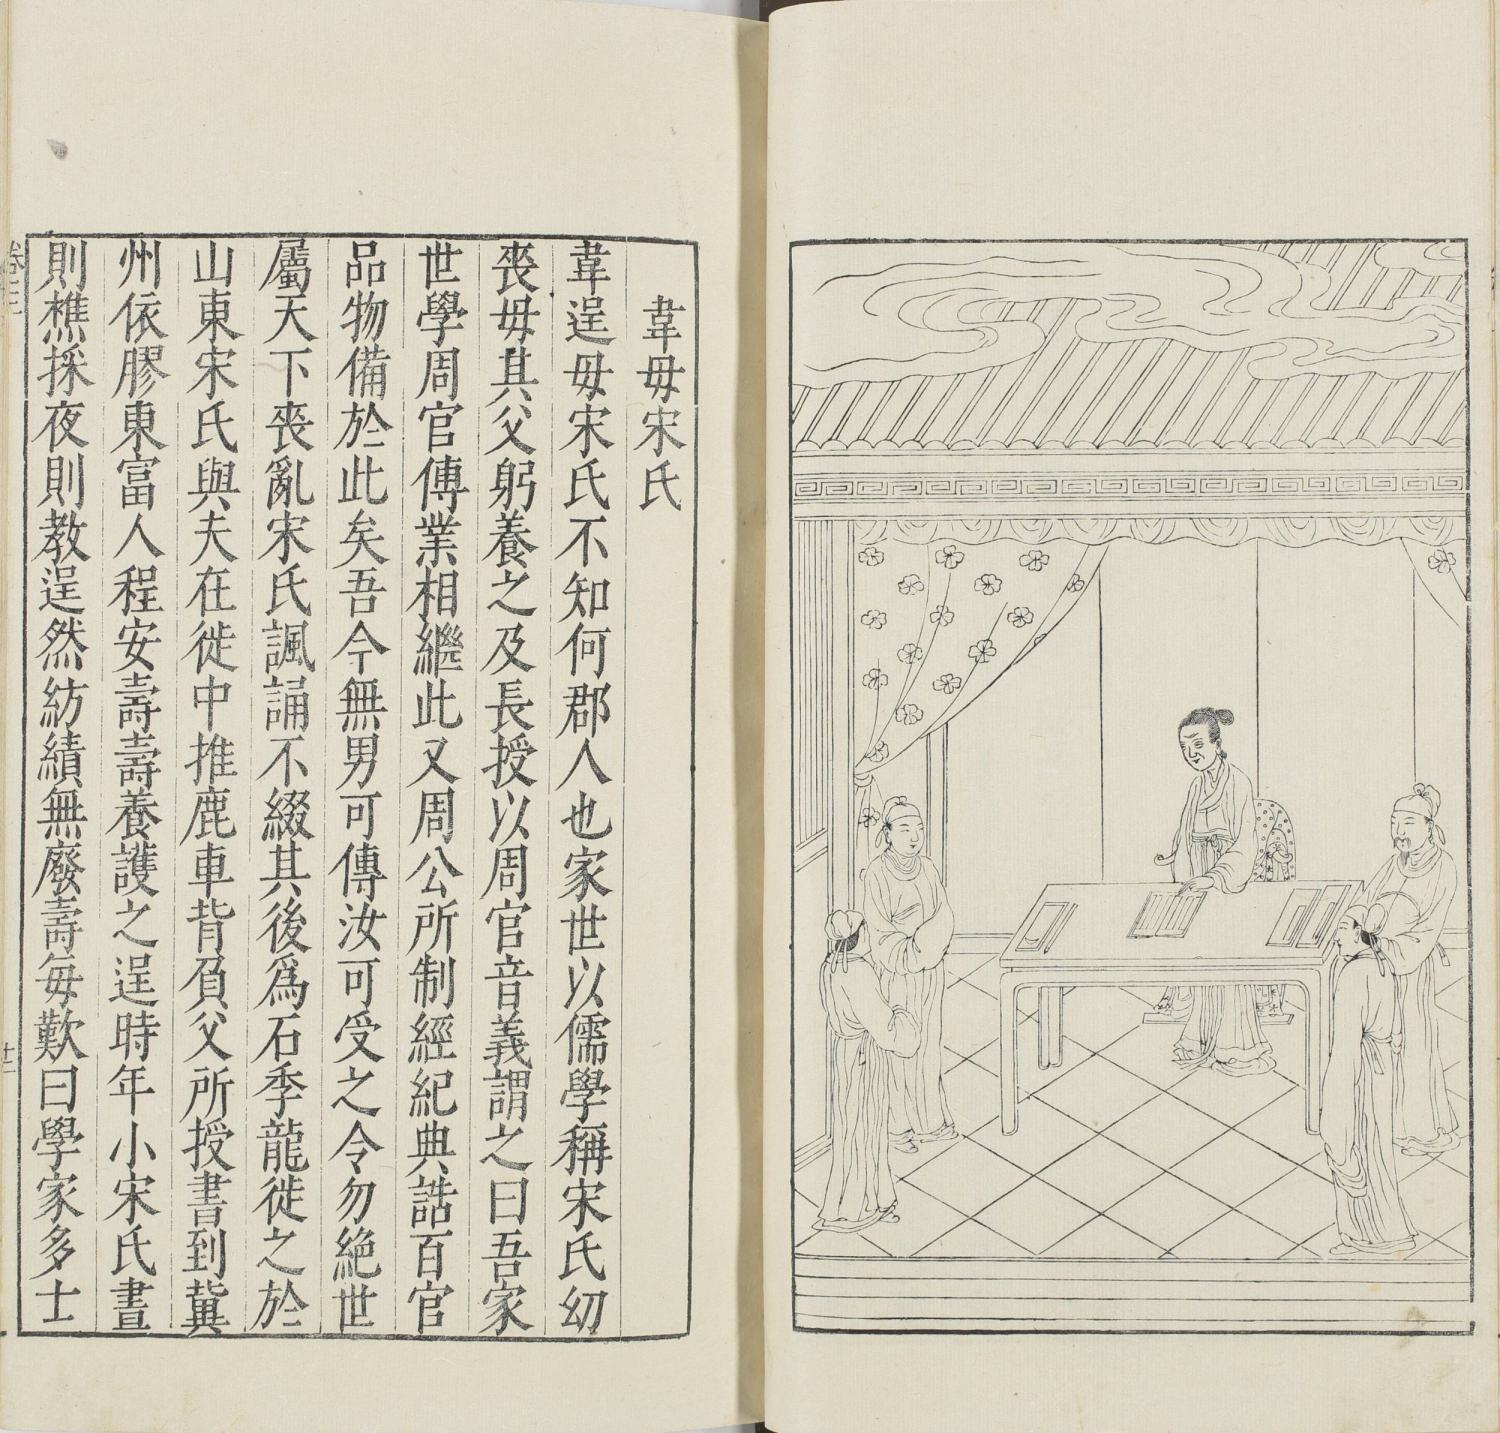 韋母宋氏
韋逞母宋氏不知何郡人也家世以儒學稱宋氏幼
喪母其父躬養之及長授以周官音義謂之曰吾家
世學周官傳業相繼此又周公所制經紀典誥百官
品物備於此矣吾今無男可傳汝可受之令勿絕世
屬天下喪亂宋氏諷誦不綴其後爲石季龍徙之於
山東宋氏與夫在徙中推鹿車背負父所授書到冀
州依膠東富人程安壽壽養護之逞時年小宋氏晝
則樵採夜則教逞然紡績無廢壽每歎曰學家多士
卷三
廿二